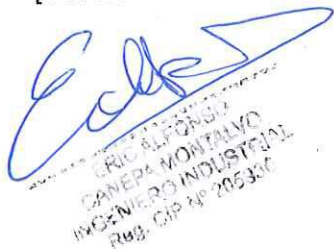 ERIC ALFONSO
CANEPA MONTALVO
INGENIERO INDUSTRIAL
Reg. CIP Nº